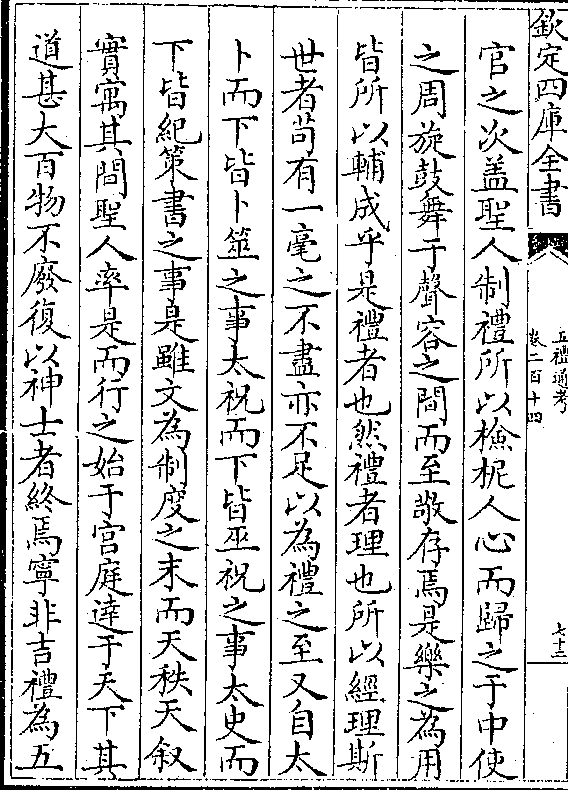 欽定四庫全書
五禮通考
卷二百十四
七十三
官之次盖聖人制禮所以檢柅人心而歸之于中使
之周旋鼓舞于聲容之間而至敬存焉是樂之為用
皆所以輔成乎是禮者也然禮者理也所以經理斯
世者苟有一毫之不盡亦不足以為禮之至又自太
卜而下皆卜筮之事太祝而下皆巫祝之事太史而
下皆紀策書之事是雖文為制度之末而天秩天叙
實寓其間聖人率是而行之始于宫庭達于天下其
道甚大百物不廢復以神士者終焉寧非吉禮為五